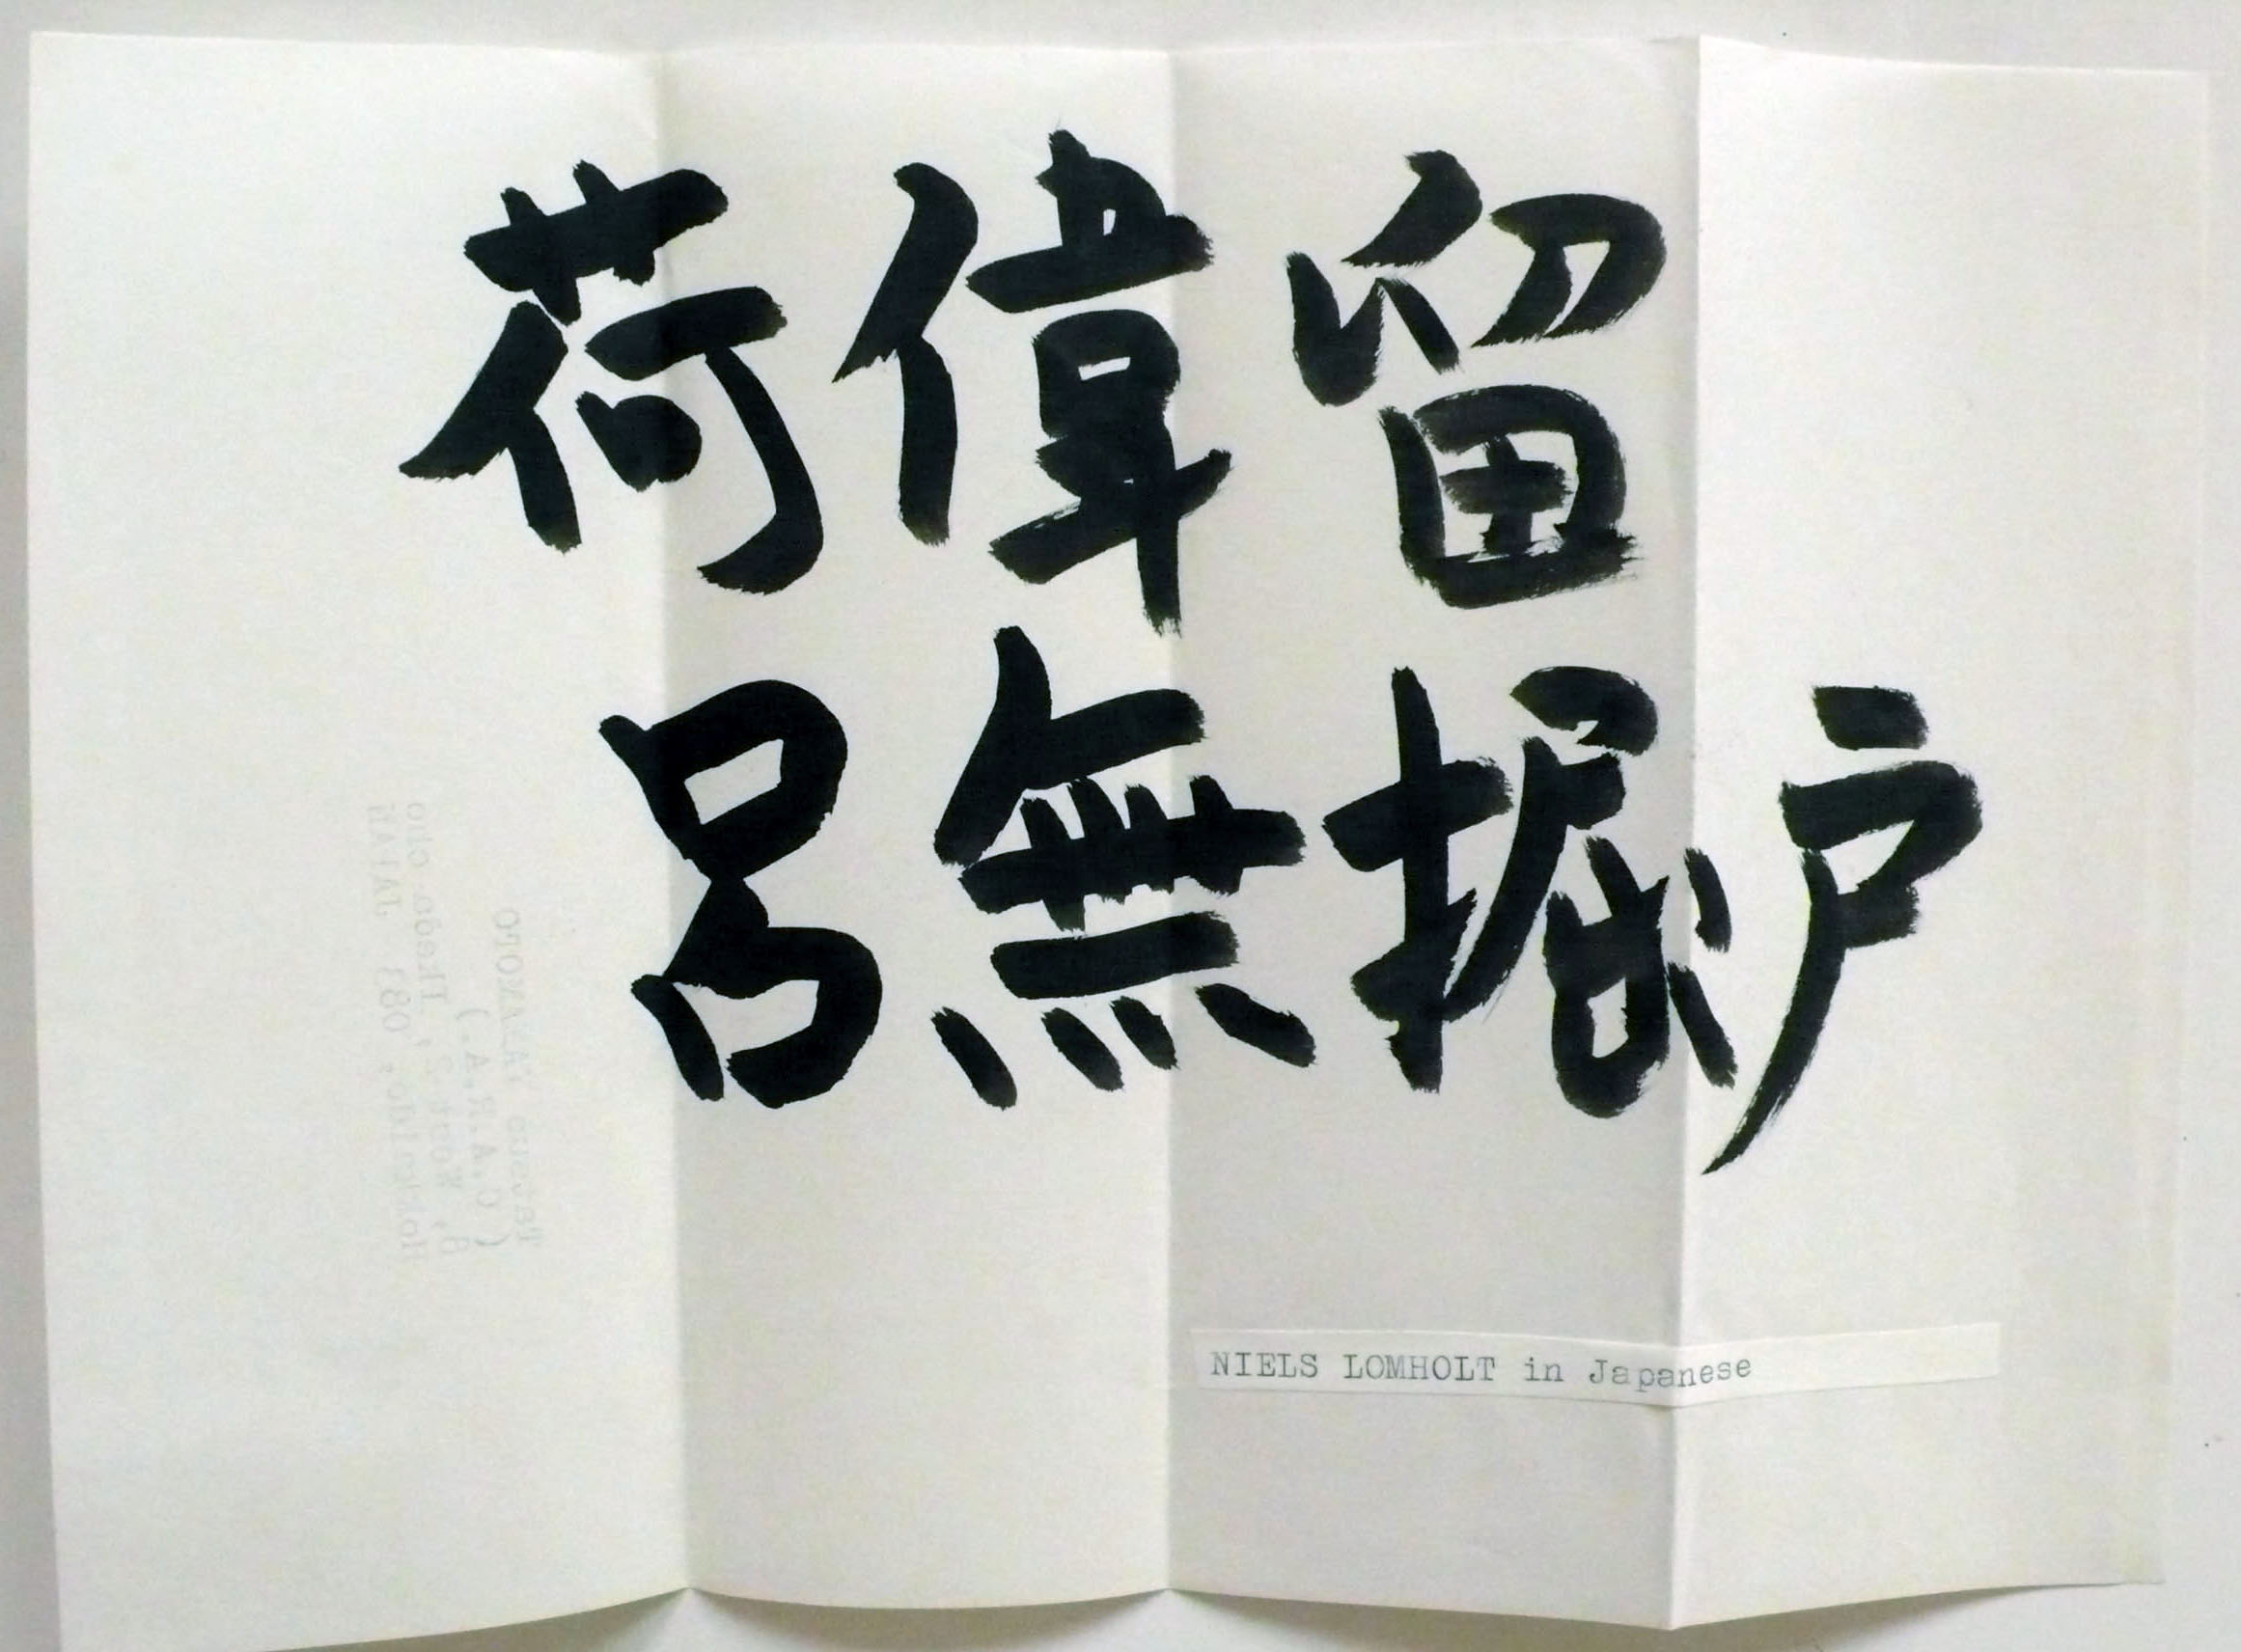 荷偉留
呂無掘戸
NIELS LOMHOLT in Japanese